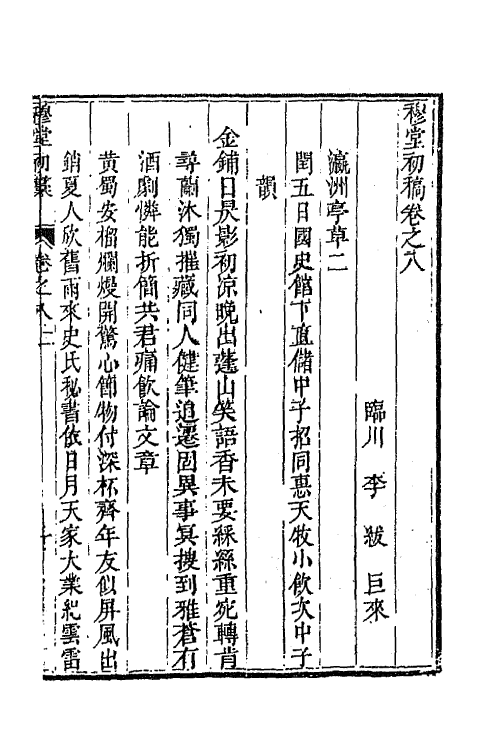 穆堂初稿卷之八
臨川 李 紱 巨來
瀛洲亭草二
閏五日國史館下直儲中子招同惠天牧小飲次中子
韻
金鋪日長影初涼晚出蓬山笑語香未要綵絲重宛轉肯
尋蘭沐獨摧藏同人健筆追遷固異事冥搜到雅蒼有
酒劇憐能折簡共君痛飲論文章
黄蜀安榴爛熳開驚心節物付深杯齊年友似屏風出
銷夏人欣舊雨來史氏秘書依日月天家大業紀雲雷
穆堂初稾 卷之八